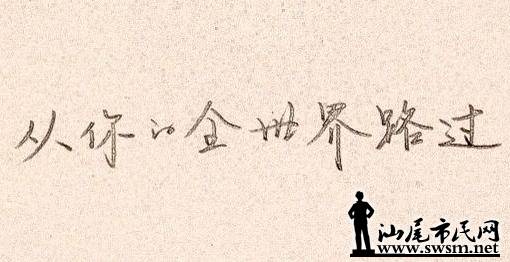 从你的全世界路过
汕尾市民网
www.swsm.net